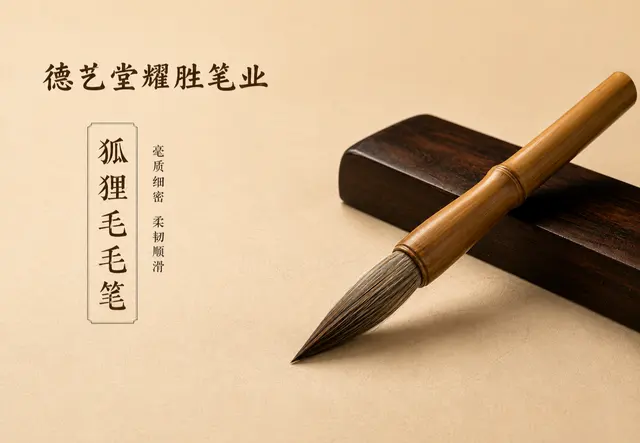 德艺堂耀胜笔业
狐狸毛毛笔
毫质细密 柔韧顺滑